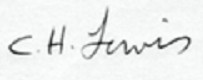 C.H. Lewis